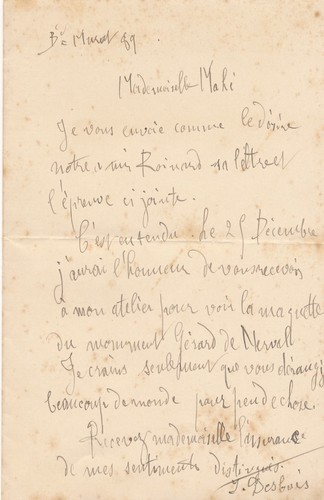 Bd Murat 89
Mademoiselle Mahé
Je vous envoie comme le désire
notre ami Roinard sa lettre et
l'épreuve ci jointe.
C'est entendu. le 25 Décembre
j'aurai l'honneur de vous recevoir
à mon atelier pour voir la maquette
du monument Gérard de Nerval
Je crains seulement que vous dérangiez
beaucoup de monde pour peu de chose.
Recevez mademoiselle l'assurance
de mes sentiments distingués.
J. Desbois